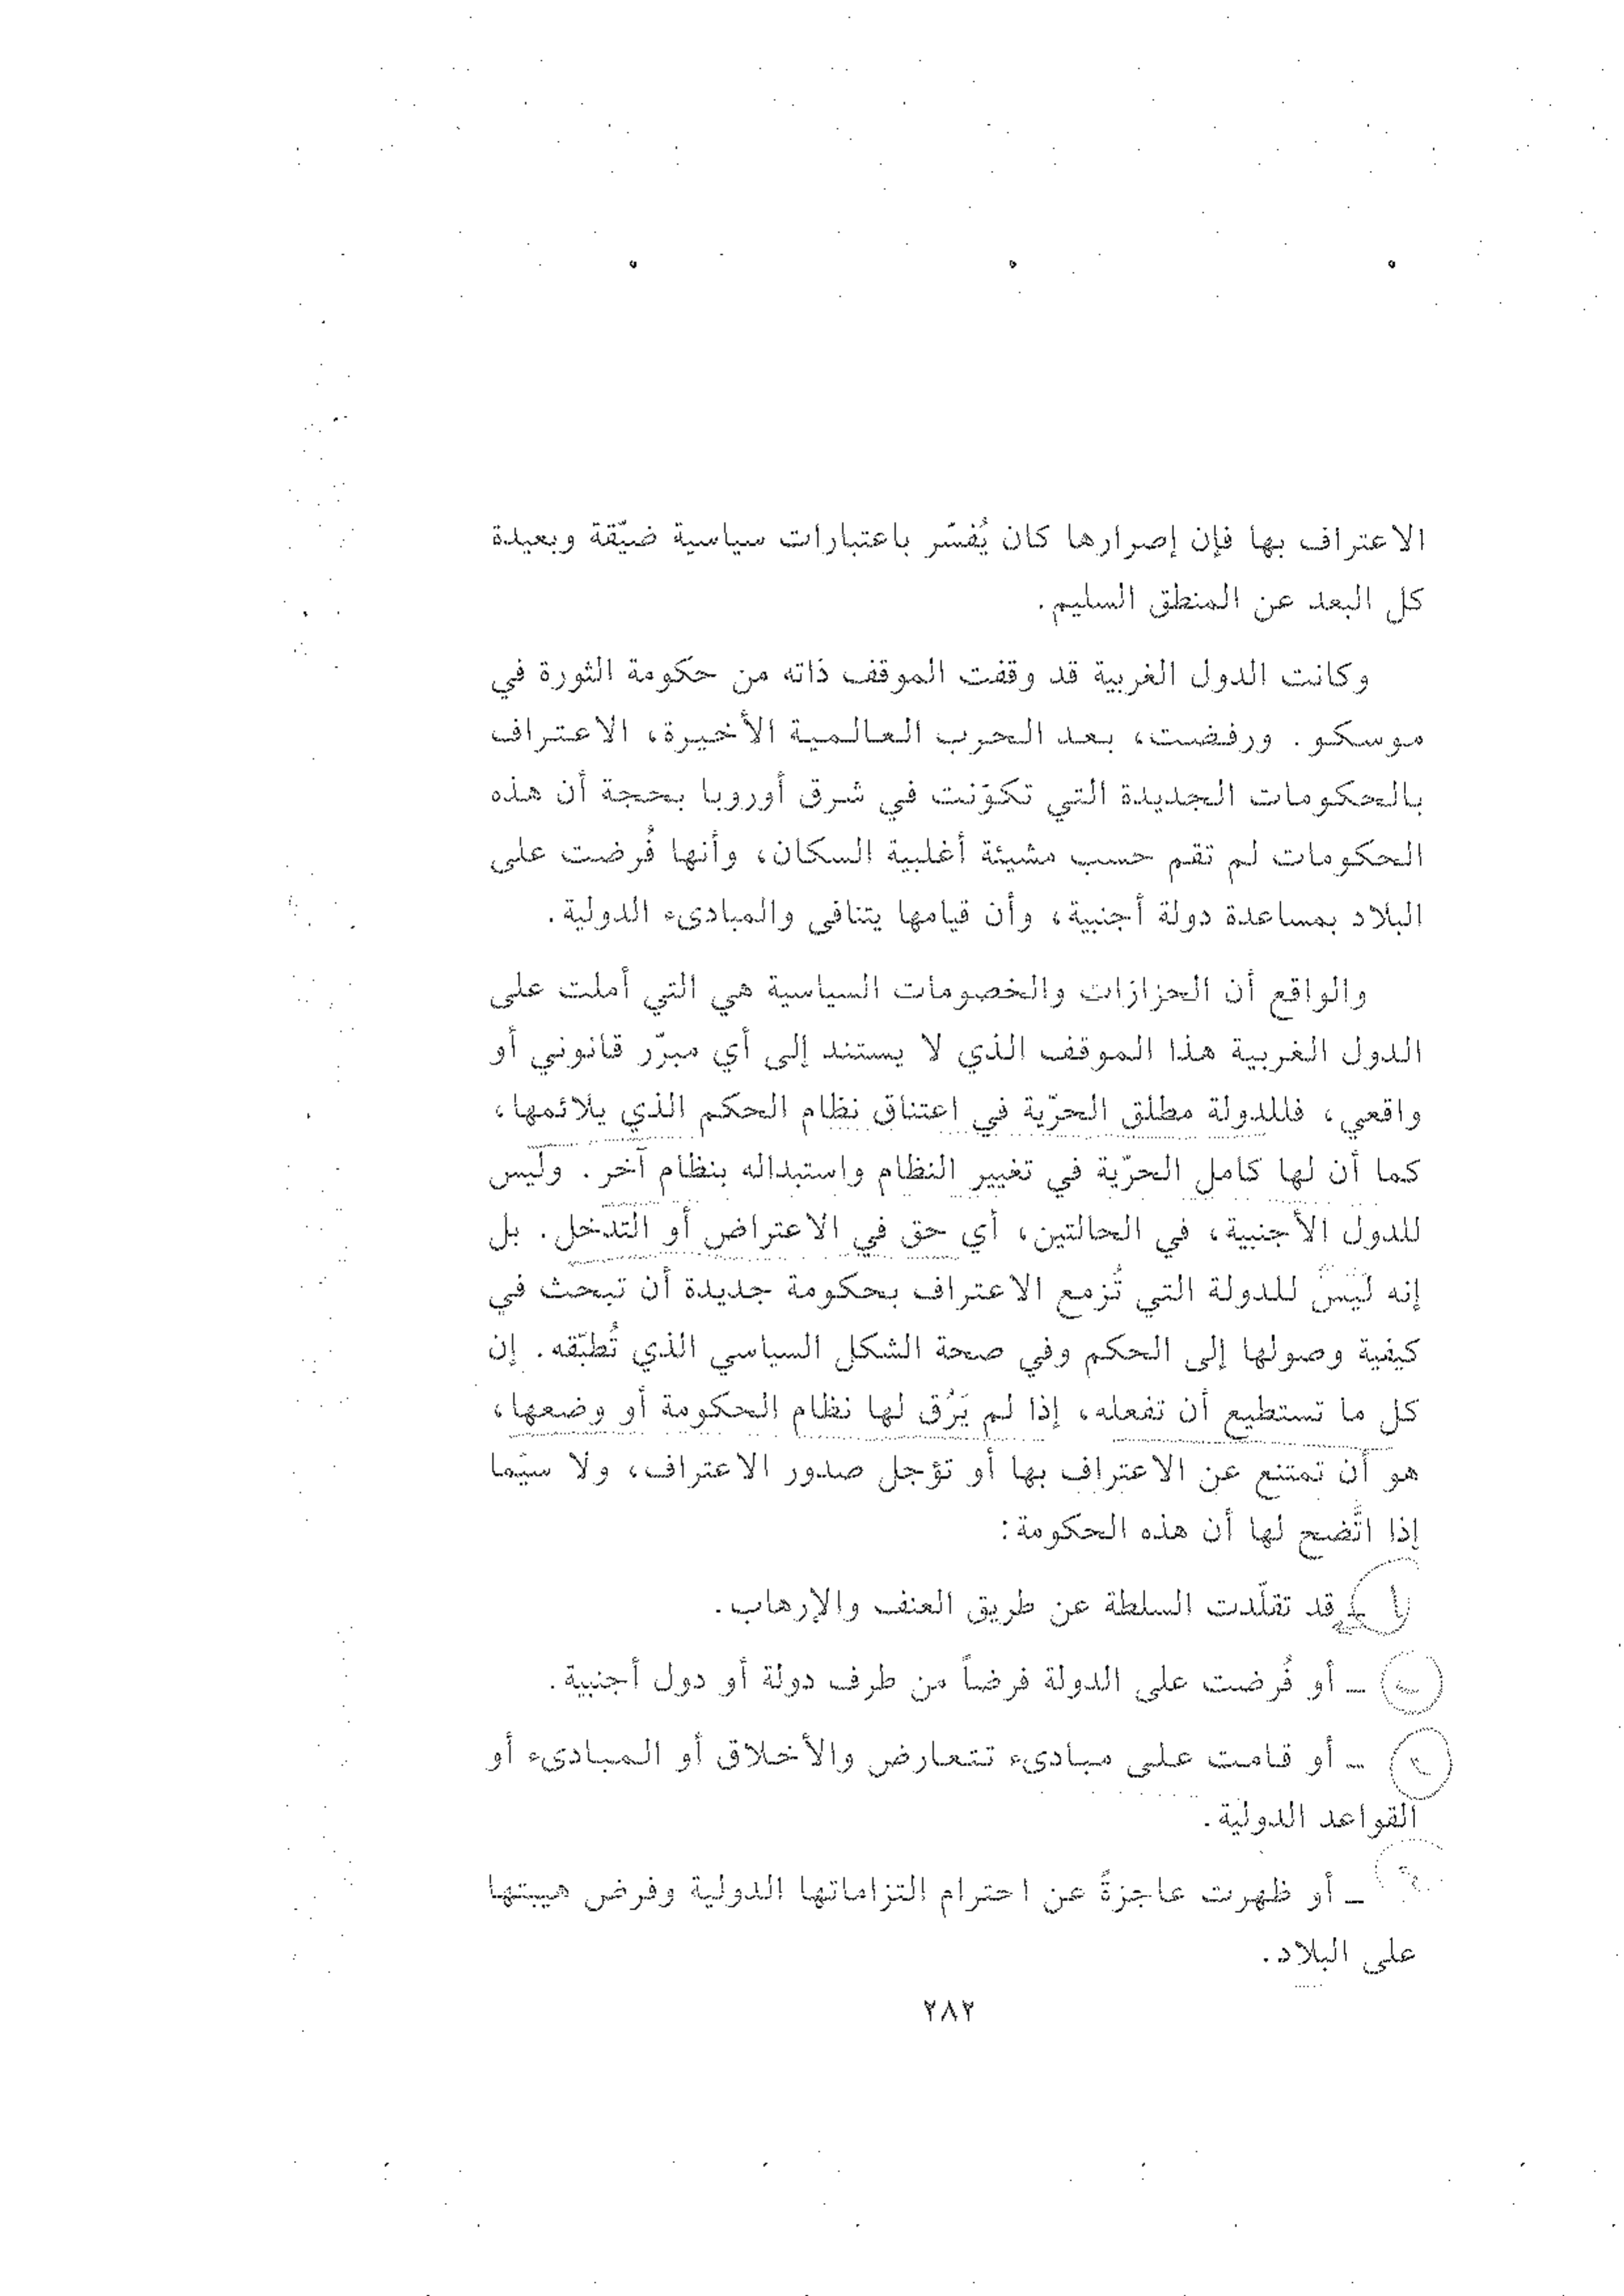 الاعتراف بها فإن إصرارها كان يُفسّر باعتبارات سياسية ضيّقة وبعيدة
كل البعد عن المنطق السليم.
وكانت الدول الغربية قد وقفت الموقف ذاته من حكومة الثورة في
موسكو. ورفضت، بعد الحرب العالمية الأخيرة، الاعتراف
بالحكومات الجديدة التي تكوّنت في شرق أوروبا بحجة أن هذه
الحكومات لم تقم حسب مشيئة أغلبية السكان، وأنها فُرضت على
البلاد بمساعدة دولة أجنبية، وأن قيامها يتنافى والمبادىء الدولية.
والواقع أن الحزازات والخصومات السياسية هي التي أملت على
الدول الغربية هذا الموقف الذي لا يستند إلى أي مبرّر قانوني أو
واقعي، فللدولة مطلق الحرّية في اعتناق نظام الحكم الذي يلائمها،
كما أن لها كامل الحرّية في تغيير النظام واستبداله بنظام آخر. وليس
للدول الأجنبية، في الحالتين، أي حق في الاعتراض أو التدخل. بل
إنه ليس للدولة التي تُزمع الاعتراف بحكومة جديدة أن تبحث في
كيفية وصولها إلى الحكم وفي صحة الشكل السياسي الذي تُطبّقه. إن
كل ما تستطيع أن تفعله، إذا لم يَرُق لها نظام الحكومة أو وضعها،
هو أن تمتنع عن الاعتراف بها أو تؤجل صدور الاعتراف، ولا سيّما
إذا اتَّضح لها أن هذه الحكومة:
أ ـ قد تقلّدت السلطة عن طريق العنف والإرهاب.
ب ـ أو فُرضت على الدولة فرضاً من طرف دولة أو دول أجنبية.
ـ أو قامت على مبادىء تتعارض والأخلاق أو المبادىء أو
القواعد الدولية.
ـ أو ظهرت عاجزةً عن احترام التزاماتها الدولية وفرض هيبتها
على البلاد.
٢٨٢